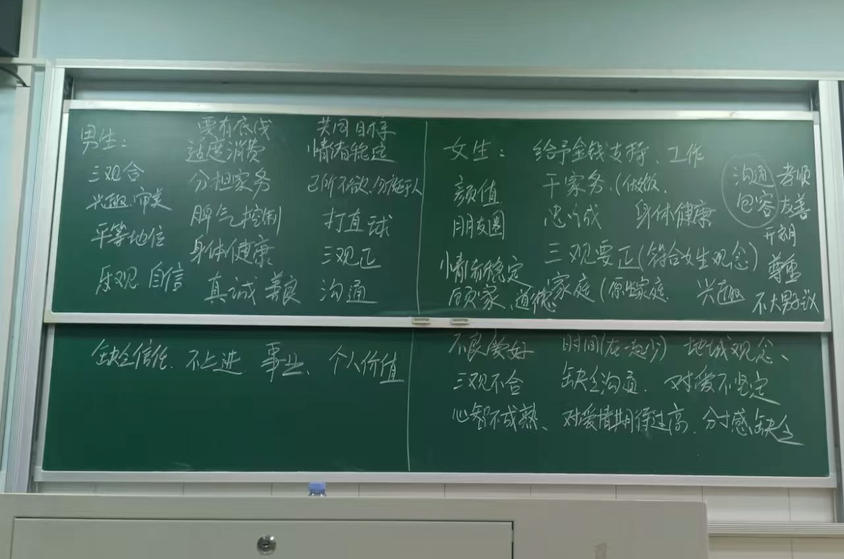 男生： 要有底线 共同目标
三观合 适度消费 情绪稳定
兴趣 审美 分担家务 己所不欲，勿施于人
平等地位 脾气控制 打直球
身体健康 三观正
乐观 自信 真诚 善良 沟通
女生： 给予金钱支持、工作
颜值 干家务（做饭、 沟通 孝顺
朋友圈 忠诚 身体健康 包容 友善
开朗
情绪稳定 三观要正（符合女生观念） 尊重
顾家、道德 家庭（原生家庭 兴趣 不大男子主义
缺乏信任、不上进 事业、个人价值
不良嗜好 时间（在一起少） 地域观念、
三观不合 缺乏沟通、对爱不坚定
心智不成熟、对爱情期待过高、分寸感缺乏